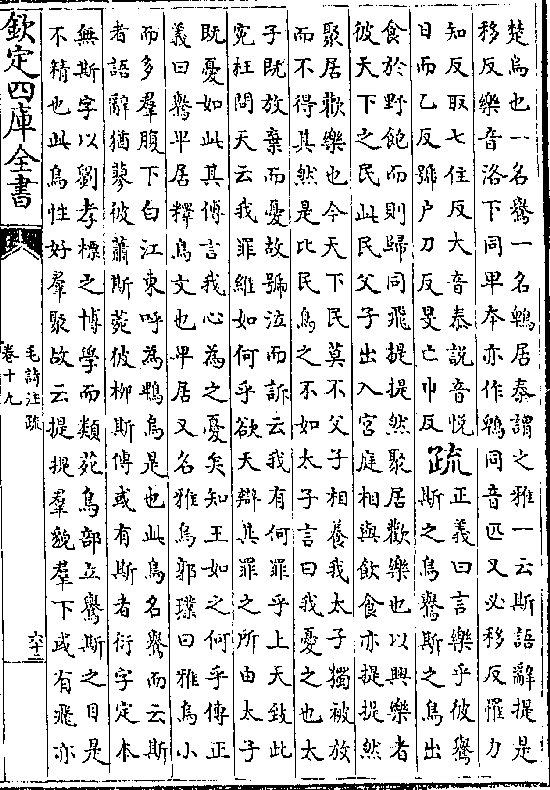 楚烏也一名鸒一名鵯居秦謂之雅一云斯語辭提是
移反樂音洛下同卑本亦作鵯同音匹又必移反罹力
知反取七住反大音泰説音悦
日而乙反號户刀反旻亡巾反
疏
正義曰言樂乎彼鸒
斯之鳥鸒斯之鳥出
食於野飽而則歸同飛提提然聚居歡樂也以興樂者
彼天下之民此民父子出入宫庭相與飲食亦提提然
聚居歡樂也今天下民莫不父子相養我太子獨被放
而不得其然是比民鳥之不如太子言曰我憂之也太
子既放棄而憂故號泣而訴云我有何罪乎上天致此
寃枉問天云我罪維如何乎欲天辯其罪之所由太子
既憂如此其傅言我心為之憂矣知王如之何乎傳正
義曰鸒卑居釋鳥文也卑居又名雅烏郭璞曰雅烏小
而多羣腹下白江東呼為鵯烏是也此鳥名鸒而云斯
者語辭猶蓼彼蕭斯菀彼柳斯傳或有斯者衍字定本
無斯字以劉孝標之博學而類苑鳥部立鸒斯之目是
不精也此鳥性好羣聚故云提提羣貌羣下或有飛亦
欽定四庫全書
毛詩注疏
卷十九
六十二